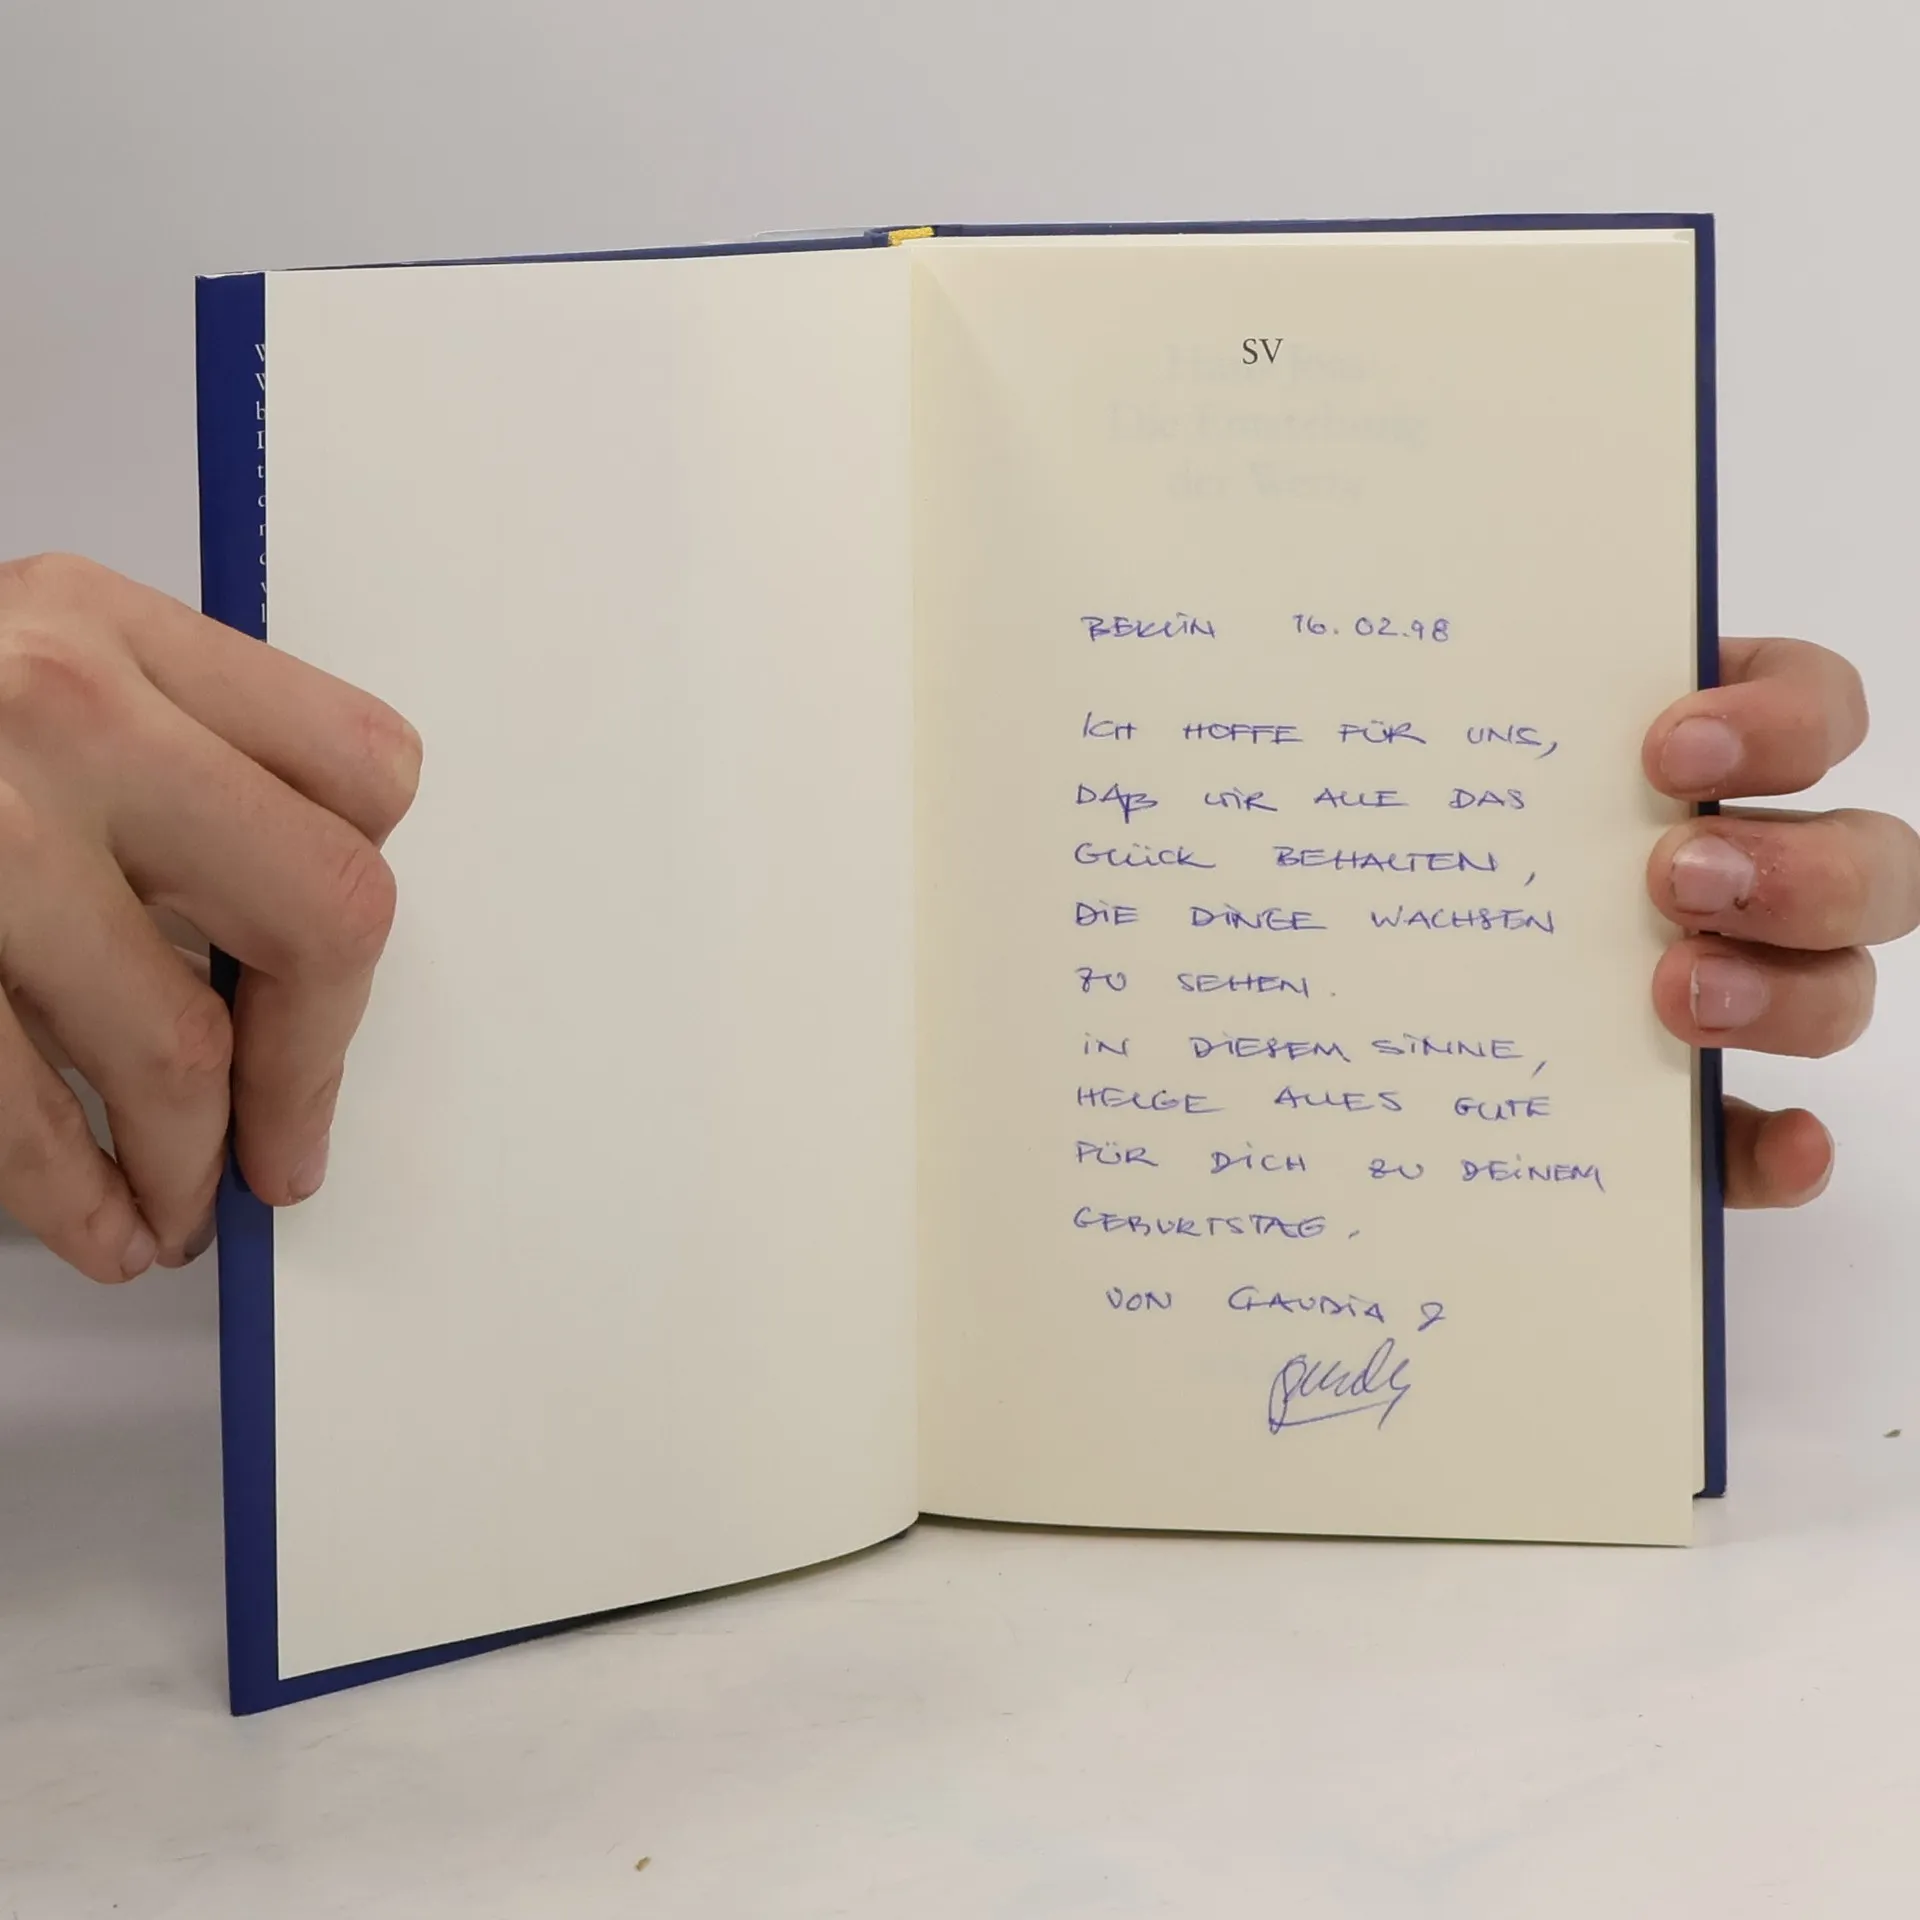 SV
BERLIN 16.02.98
ICH HOFFE FÜR UNS,
DAß WIR ALLE DAS
GLÜCK BEHALTEN,
DIE DINGE WACHSEN
ZU SEHEN.
IN DIESEM SINNE,
HELGE ALLES GUTE
FÜR DICH ZU DEINEM
GEBURTSTAG.
VON CLAUDIA &